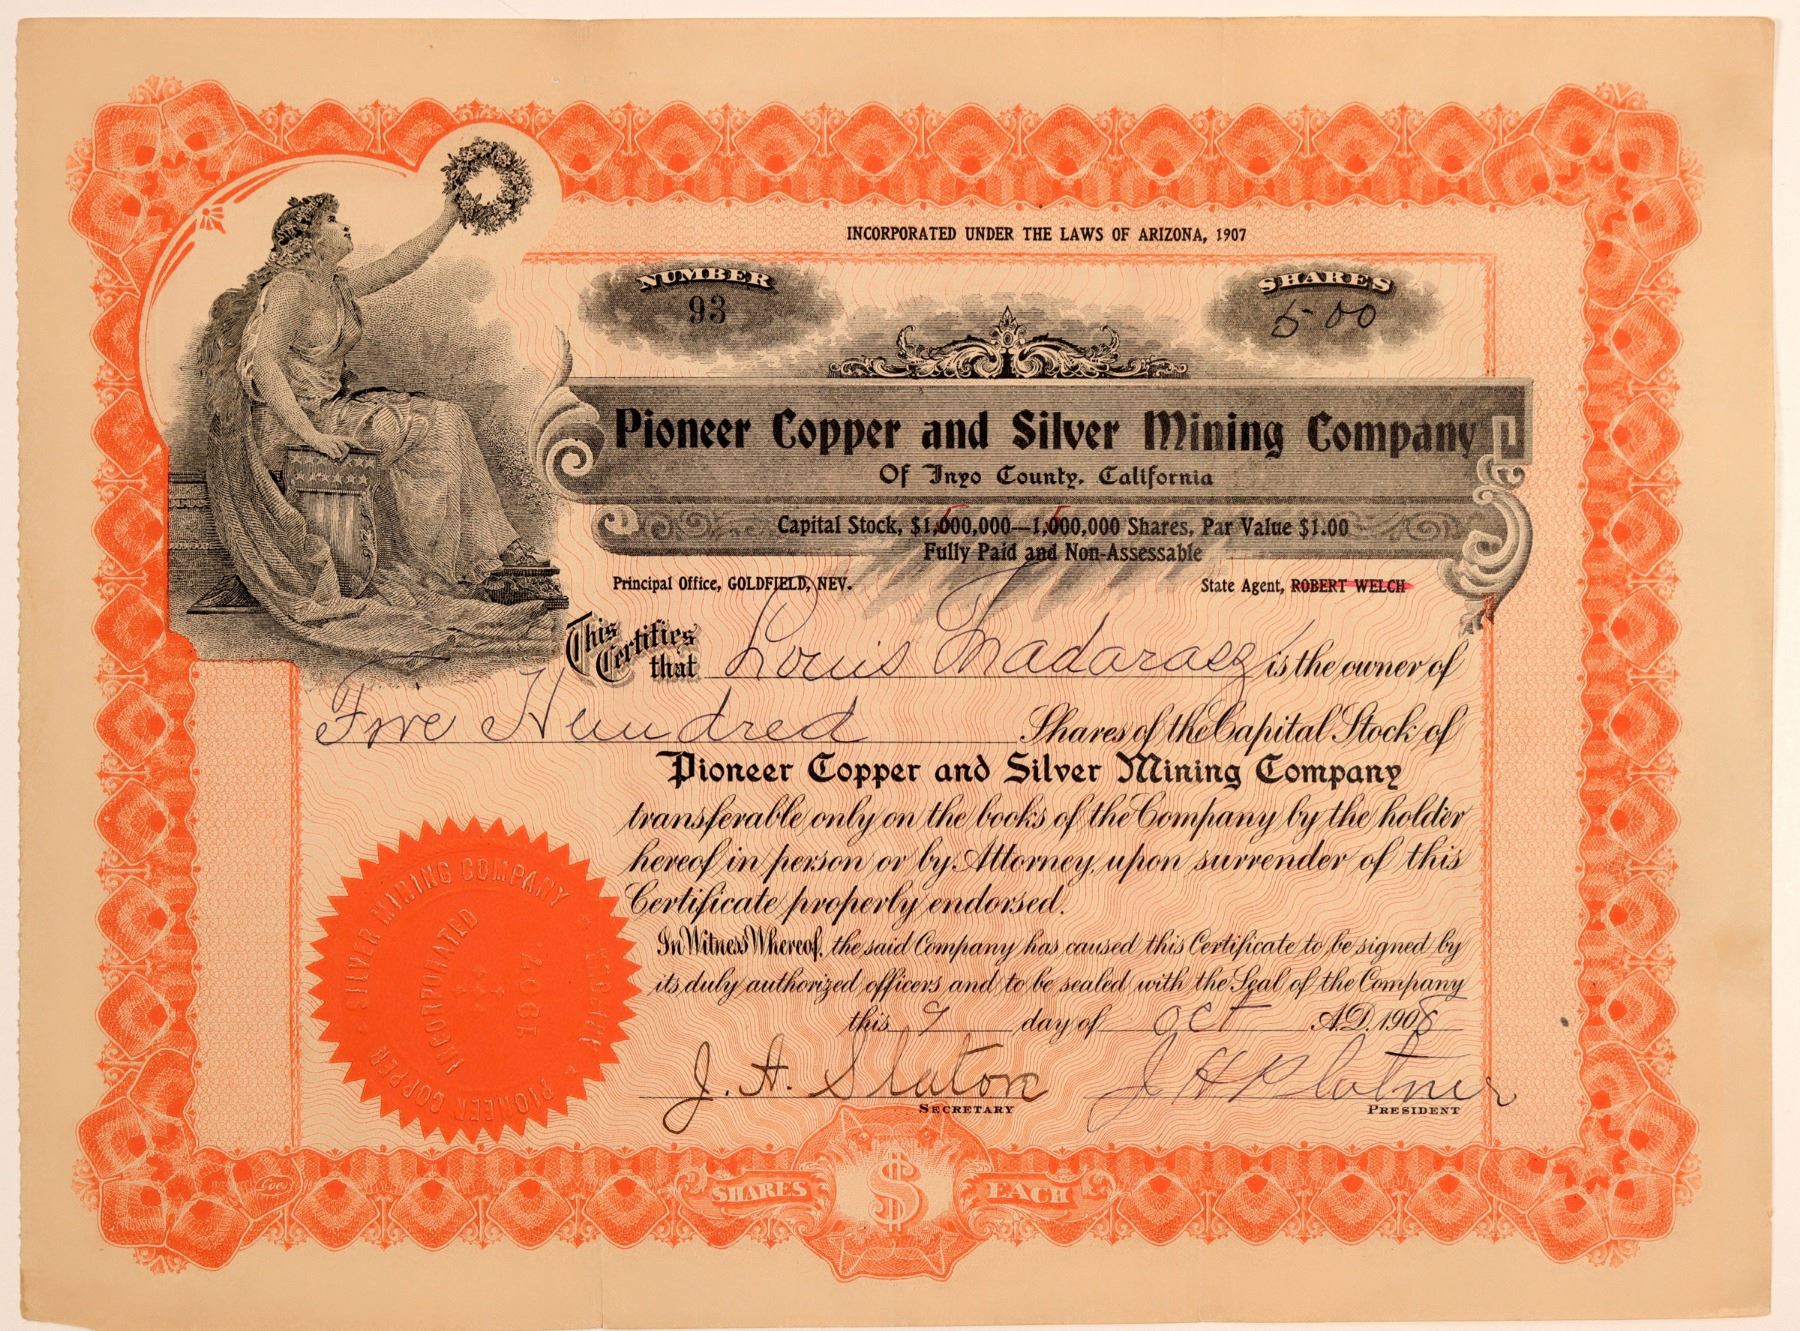 INCORPORATED UNDER THE LAWS OF ARIZONA, 1907
NUMBER
93
SHARES
500
Pioneer Copper and Silver Mining Company
Of Inyo County, California
Capital Stock, $1,500,000—1,500,000 Shares, Par Value $1.00
Fully Paid and Non-Assessable
Principal Office, GOLDFIELD, NEV.
State Agent, ROBERT WELCH
This Certifies that Louis Madarasz is the owner of
Five Hundred Shares of the Capital Stock of
Pioneer Copper and Silver Mining Company
transferable only on the books of the Company by the holder
hereof in person or by Attorney, upon surrender of this
Certificate properly endorsed.
In Witness Whereof, the said Company has caused this Certificate to be signed by
its duly authorized officers and to be sealed with the Seal of the Company
this 9 day of Oct A.D. 1908
J. A. Slaton
SECRETARY
J H Platner
PRESIDENT
PIONEER COPPER SILVER MINING COMPANY
INCORPORATED
1907
SHARES $ EACH
Goes